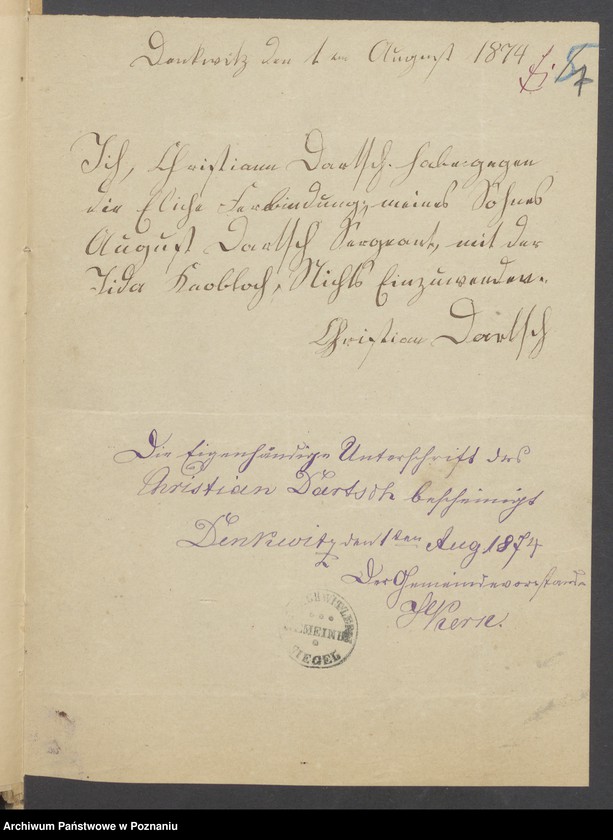 Denkwitz den 1 ten August 1874
7
Ich, Christiann Dartsch. habe gegen
die Eliche Ferbindung, meines Sohnes
August Dartsch Sergeant, mit der
Iida Knobloch, Nichts Einzuwenden.
Christian Dartsch
Die Eigenhändige Unterschrift des
Christian Dartsch bescheinigt
Denkwitz den 1 ten Aug 1874
Der Gemeindevorstand
GEMEINDE
SIEGEL
Archiwum Państwowe w Poznaniu